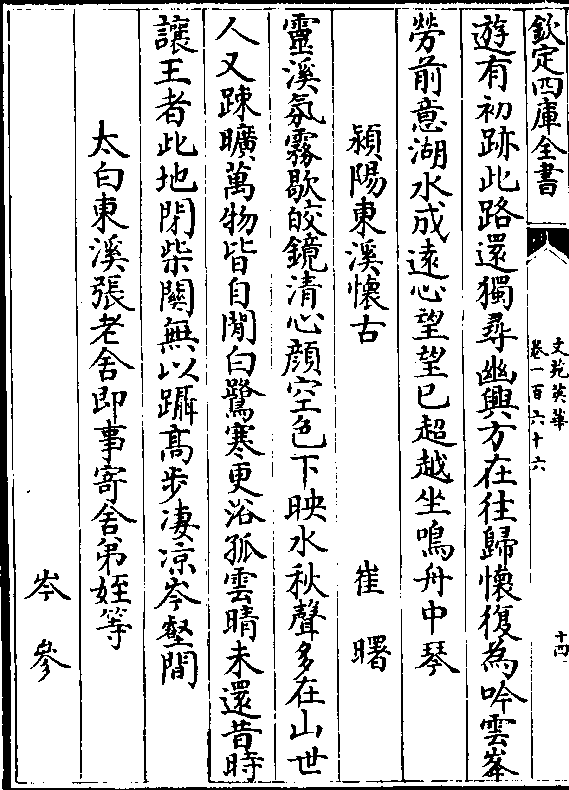 欽定四庫全書
文苑英華
卷一百六十六
十四
遊有初跡此路還獨尋幽興方在往歸懷復為吟雲峯
勞前意湖水成遠心望望已超越坐鳴舟中琴
潁陽東溪懷古 崔曙
靈溪氛霧歇皎鏡清心顔空色下映水秋聲多在山世
人又踈曠萬物皆自閒白鷺寒更浴孤雲晴未還昔時
讓王者此地閉柴關無以躡髙步凄凉岑壑間
太白東溪張老舍即事寄舍弟姪等
岑參